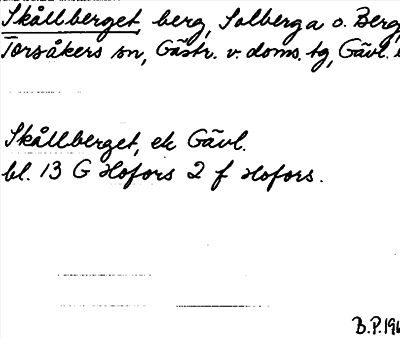 Skållberget berg, Solberga o. Berg,
Torsåkers sn, Gästr. v. doms. tg, Gävl.
Skållberget, ek Gävl.
bl. 13 G Hofors 2 f Hofors.
B.P.196